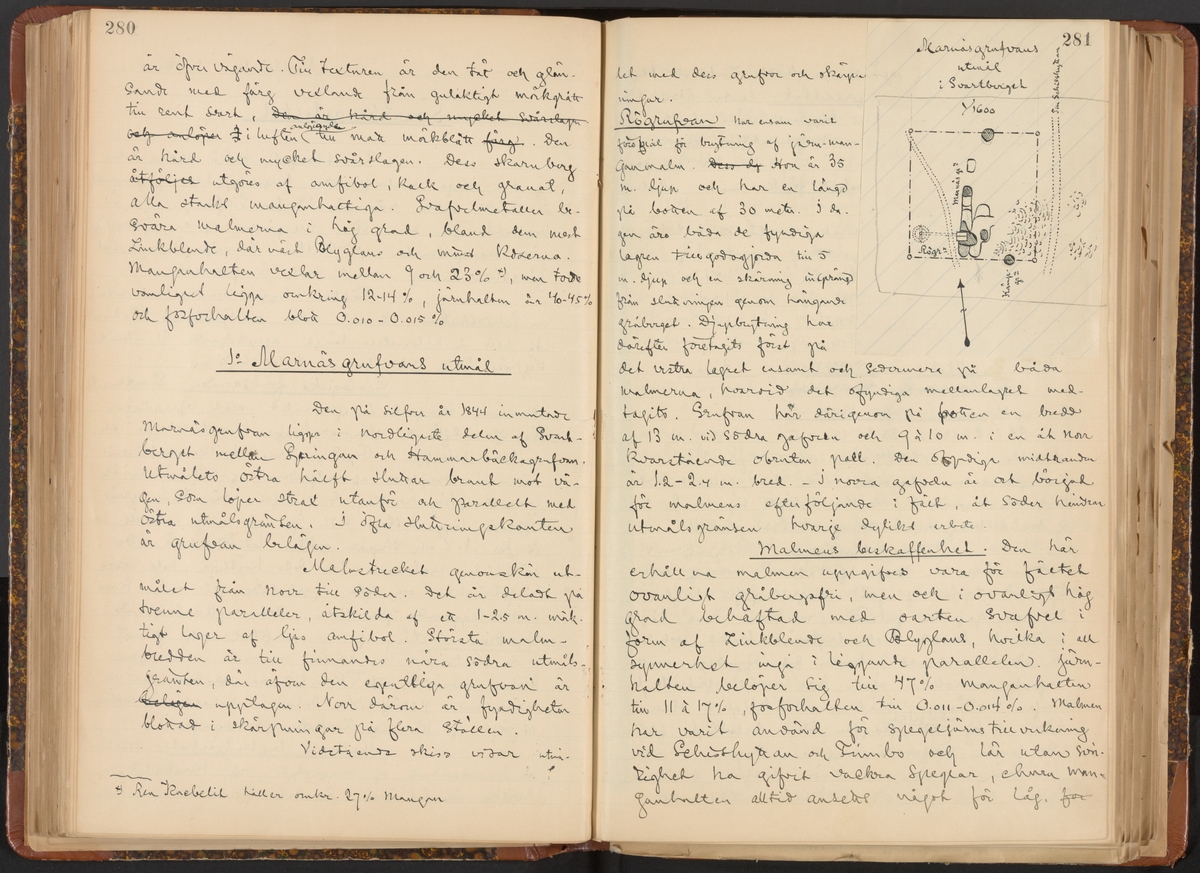 280
är öfvervägande. Till texturen är den tät och glän-
sande med färg vexlande från gulaktigt mörkgrått
till rent svart, den är hård och mycket svårslagen
och anlöper i luften till matt mörkblått färg. Den
är hård och mycket svårslagen. Dess skarnberg
åtföljes utgöres af amfibol, kalk och granat,
alla starkt manganhaltiga. Svafvelmetaller be-
svära malmerna i hög grad, bland dem mest
Zinkblende, därnäst Blyglans och minst Kiserna.
Manganhalten vexlar mellan 9 och 23% *), men torde
vanligast ligga omkring 12-14%, järnhalten är 40-45%
och fosforhalten blott 0.010-0.015%
1o Marnäsgrufvans utmål
Den på silfver år 1844 inmutade
Marnäsgrufvan ligger i nordligaste delen af Svart-
berget mellan Springun och Hammarbäcksgrufvan.
Utmålets östra hälft sluttar brant mot vä-
gen, som löper strax utanför och parallellt med
östra utmålsgränsen. I öfra sluttningskanten
är grufvan belägen.
Malmstrecket genomskär ut-
målet från Norr till Söder. Det är deladt på
tvenne paralleler, åtskilda af ett 1-2.5 m. mäk-
tigt lager af ljus amfibol. Största malm-
bredden är till finnandes nära södra utmåls-
gränsen, där äfven den egentliga grufvan är
belägen upptagen. Norr därom är fyndigheten
blottad i skärpningar på flera ställen.
Vidstående skiss visar utmå-
*) Ren Knebelit håller omkr. 27% Mangan
281
let med dess grufvor och skärp-
ningar.
Rögrufvan har ensam varit
föremål för brytning af järn-man-
ganmalm. Dess dj Hon är 35
m. djup och har en längd
på botten af 30 meter. I da-
gen äro båda de fyndiga
lagren tillgodogjorda till 5
m. djup och en skärning insprängd
från sluttningen genom hängande
gråberget. Djupbrytning har
därefter företagits först på
det västra lagret ensamt och sedermera på båda
malmerna, hvarvid det ofyndiga mellanlagret med-
tagits. Grufvan har därigenom på botten en bredd
af 13 m. vid södra gafveln och 9 à 10 m. i en åt norr
kvarstående obruten pall. Den ofyndiga midtranden
är 1.2-2.4 m. bred. - I norra gafveln är ort börjad
för malmens efterföljande i fält, åt söder hindrar
utmålsgränsen hvarje dylikt arbete.
Malmens beskaffenhet. Den här
erhållna malmen uppgifves vara för fältet
ovanligt gråbergsfri, men ock i ovanligt hög
grad behäftad med oarten Svafvel i
form af Zinkblende och Blyglans, hvilka i all
synnerhet ingå i liggande parallelen. Järn-
halten belöper sig till 47% manganhalten
till 11 à 17%, fosforhalten till 0.011-0.014%. Malmen
har varit använd för spegeljärnstillverkning
vid Schisshyttan och Finnbo och lär utan svå-
righet ha gifvit vackra speglar, ehuru man-
ganhalten alltid ansetts något för låg. för
Marnäsgrufvans
utmål
i Svartberget
1/1600
Marnäs gr.
Rögr.
Kungs gr.